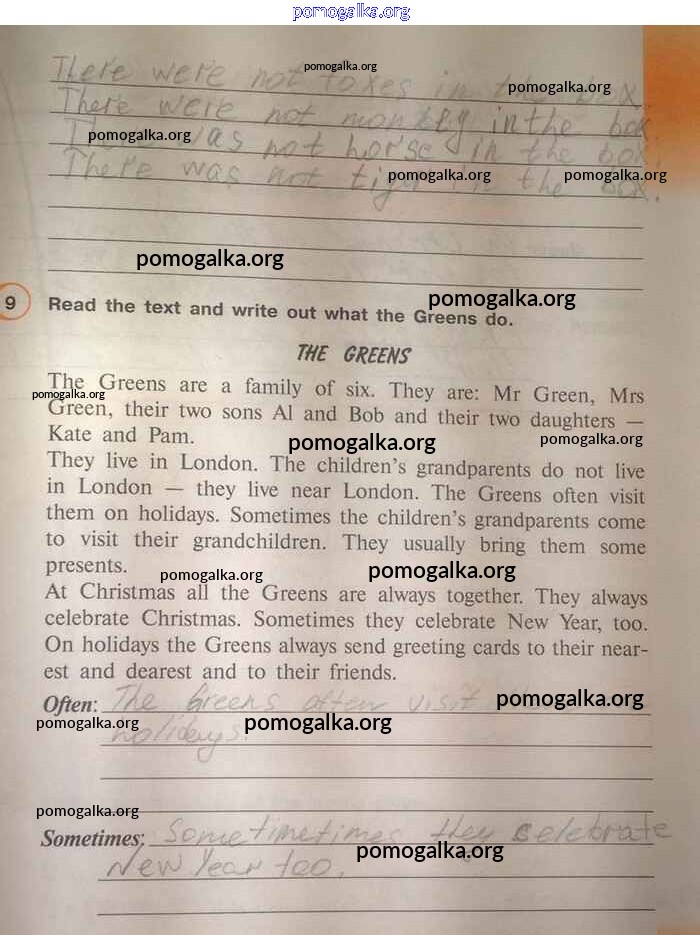 pomogalka.org
There were not foxes in the box.
pomogalka.org
pomogalka.org
There were not monkey in the box.
pomogalka.org
There was not horse in the box.
There was not tiger in the box.
pomogalka.org
pomogalka.org
pomogalka.org
pomogalka.org
9 Read the text and write out what the Greens do.
THE GREENS
The Greens are a family of six. They are: Mr Green, Mrs
pomogalka.org
Green, their two sons Al and Bob and their two daughters —
Kate and Pam.
pomogalka.org
pomogalka.org
They live in London. The children's grandparents do not live
in London — they live near London. The Greens often visit
them on holidays. Sometimes the children's grandparents come
to visit their grandchildren. They usually bring them some
presents.
pomogalka.org
pomogalka.org
At Christmas all the Greens are always together. They always
celebrate Christmas. Sometimes they celebrate New Year, too.
On holidays the Greens always send greeting cards to their near-
est and dearest and to their friends.
Often: The Greens often visit
pomogalka.org
pomogalka.org
pomogalka.org
holidays.
pomogalka.org
Sometimes: Sometimetimes they celebrate
pomogalka.org
New Year too.